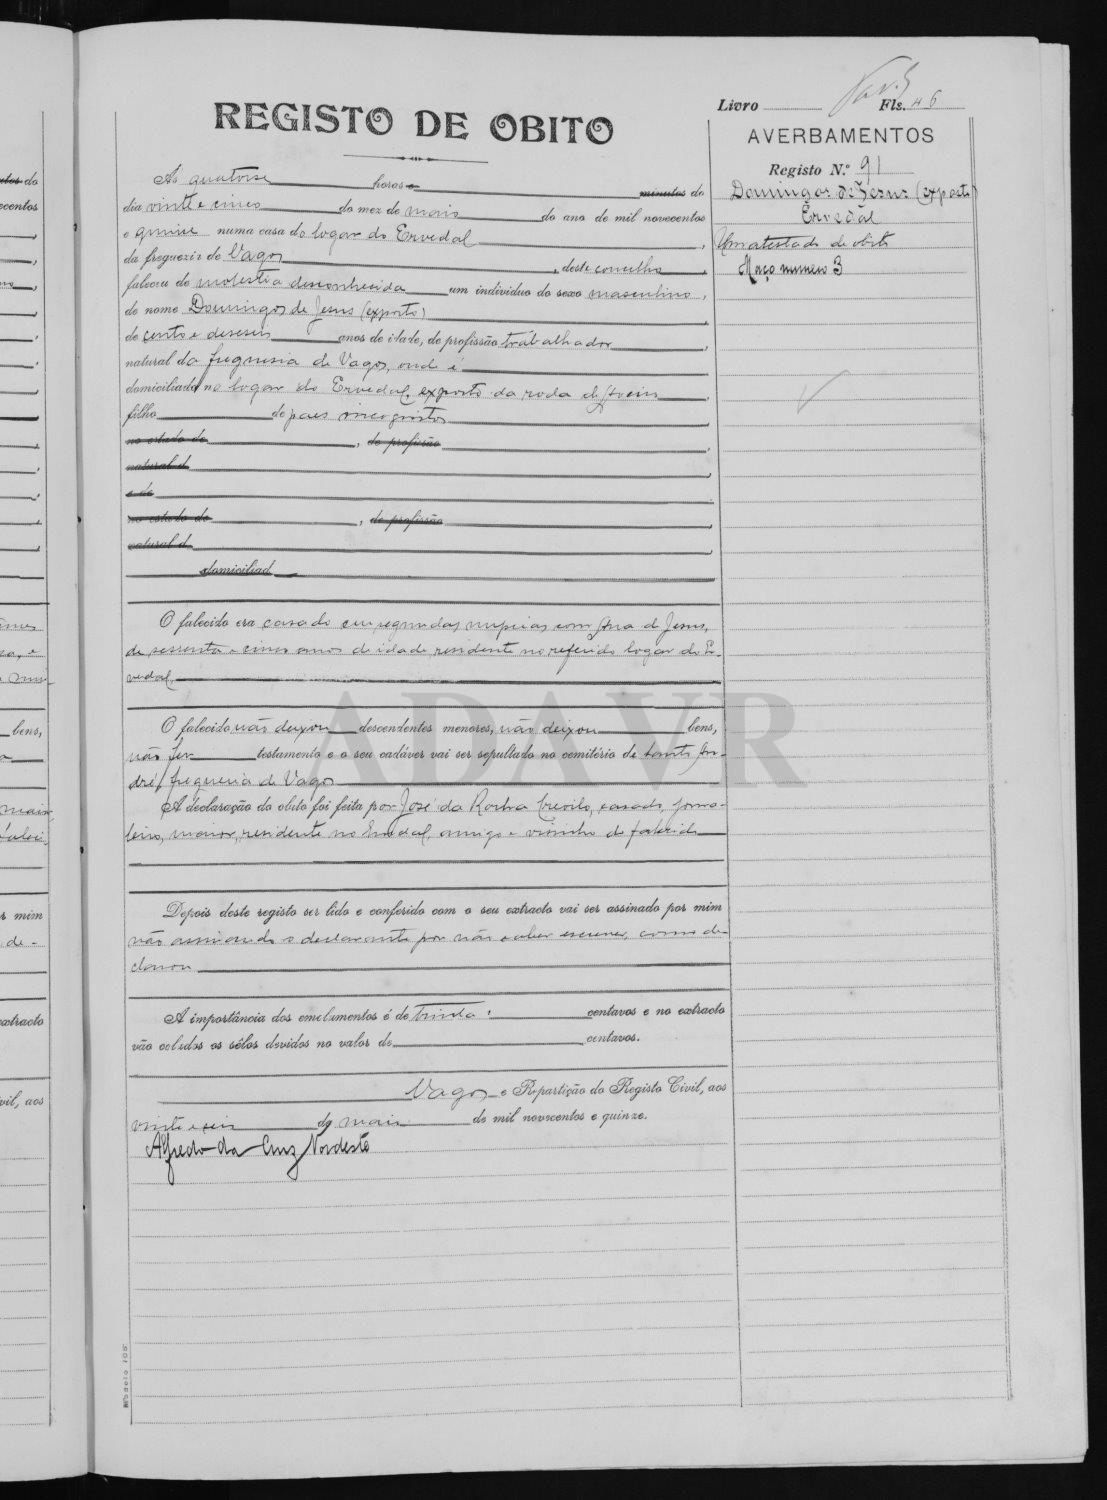 Livro Fls. 46
REGISTO DE OBITO
AVERBAMENTOS
Registo N.º 91
Domingos de Jesus (exposto)
Ervedal
Um atestado de obito
Maço numero 3
Às quatorse horas e minutos do
dia vinte e cinco do mez de maio do ano de mil novecentos
e quinse numa casa do logar do Ervedal,
da freguezia de Vagos, deste concelho,
faleceu de molestia desconhecida um individuo do sexo masculino,
de nome Domingos de Jesus (exposto),
de cento e deseseis anos de idade, de profissão trabalhador,
natural da freguesia de Vagos, onde é
domiciliado no logar do Ervedal, exposto da roda d'Aveiro,
filho de paes incognitos,
no estado de, de profissão,
natural d
e de
no estado de, de profissão,
natural d,
domiciliad
O falecido era casado em segundas nupcias com Ana de Jesus,
de sessenta e cinco anos de idade, residente no referido logar do Er-
vedal,
O falecido não deixou descendentes menores, não deixou bens,
não fez testamento e o seu cadáver vai ser sepultado no cemitério de Santo An-
dré, freguesia de Vagos
A declaração do obito foi feita por José da Rocha, casado, jorna-
leiro, maior, residente no Ervedal, amigo e visinho do falecido
Depois deste registo ser lido e conferido com o seu extracto vai ser assinado por mim
não assinando o declarante por não saber escrever, como de-
clarou
A importância dos emolumentos é de trinta centavos e no extracto
vão colados os sêlos devidos no valor de centavos.
Vagos e Repartição do Registo Civil, aos
vinte e seis de maio de mil novecentos e quinze.
Alfredo da Cruz Nordeste
Modelo 105
ADAVR